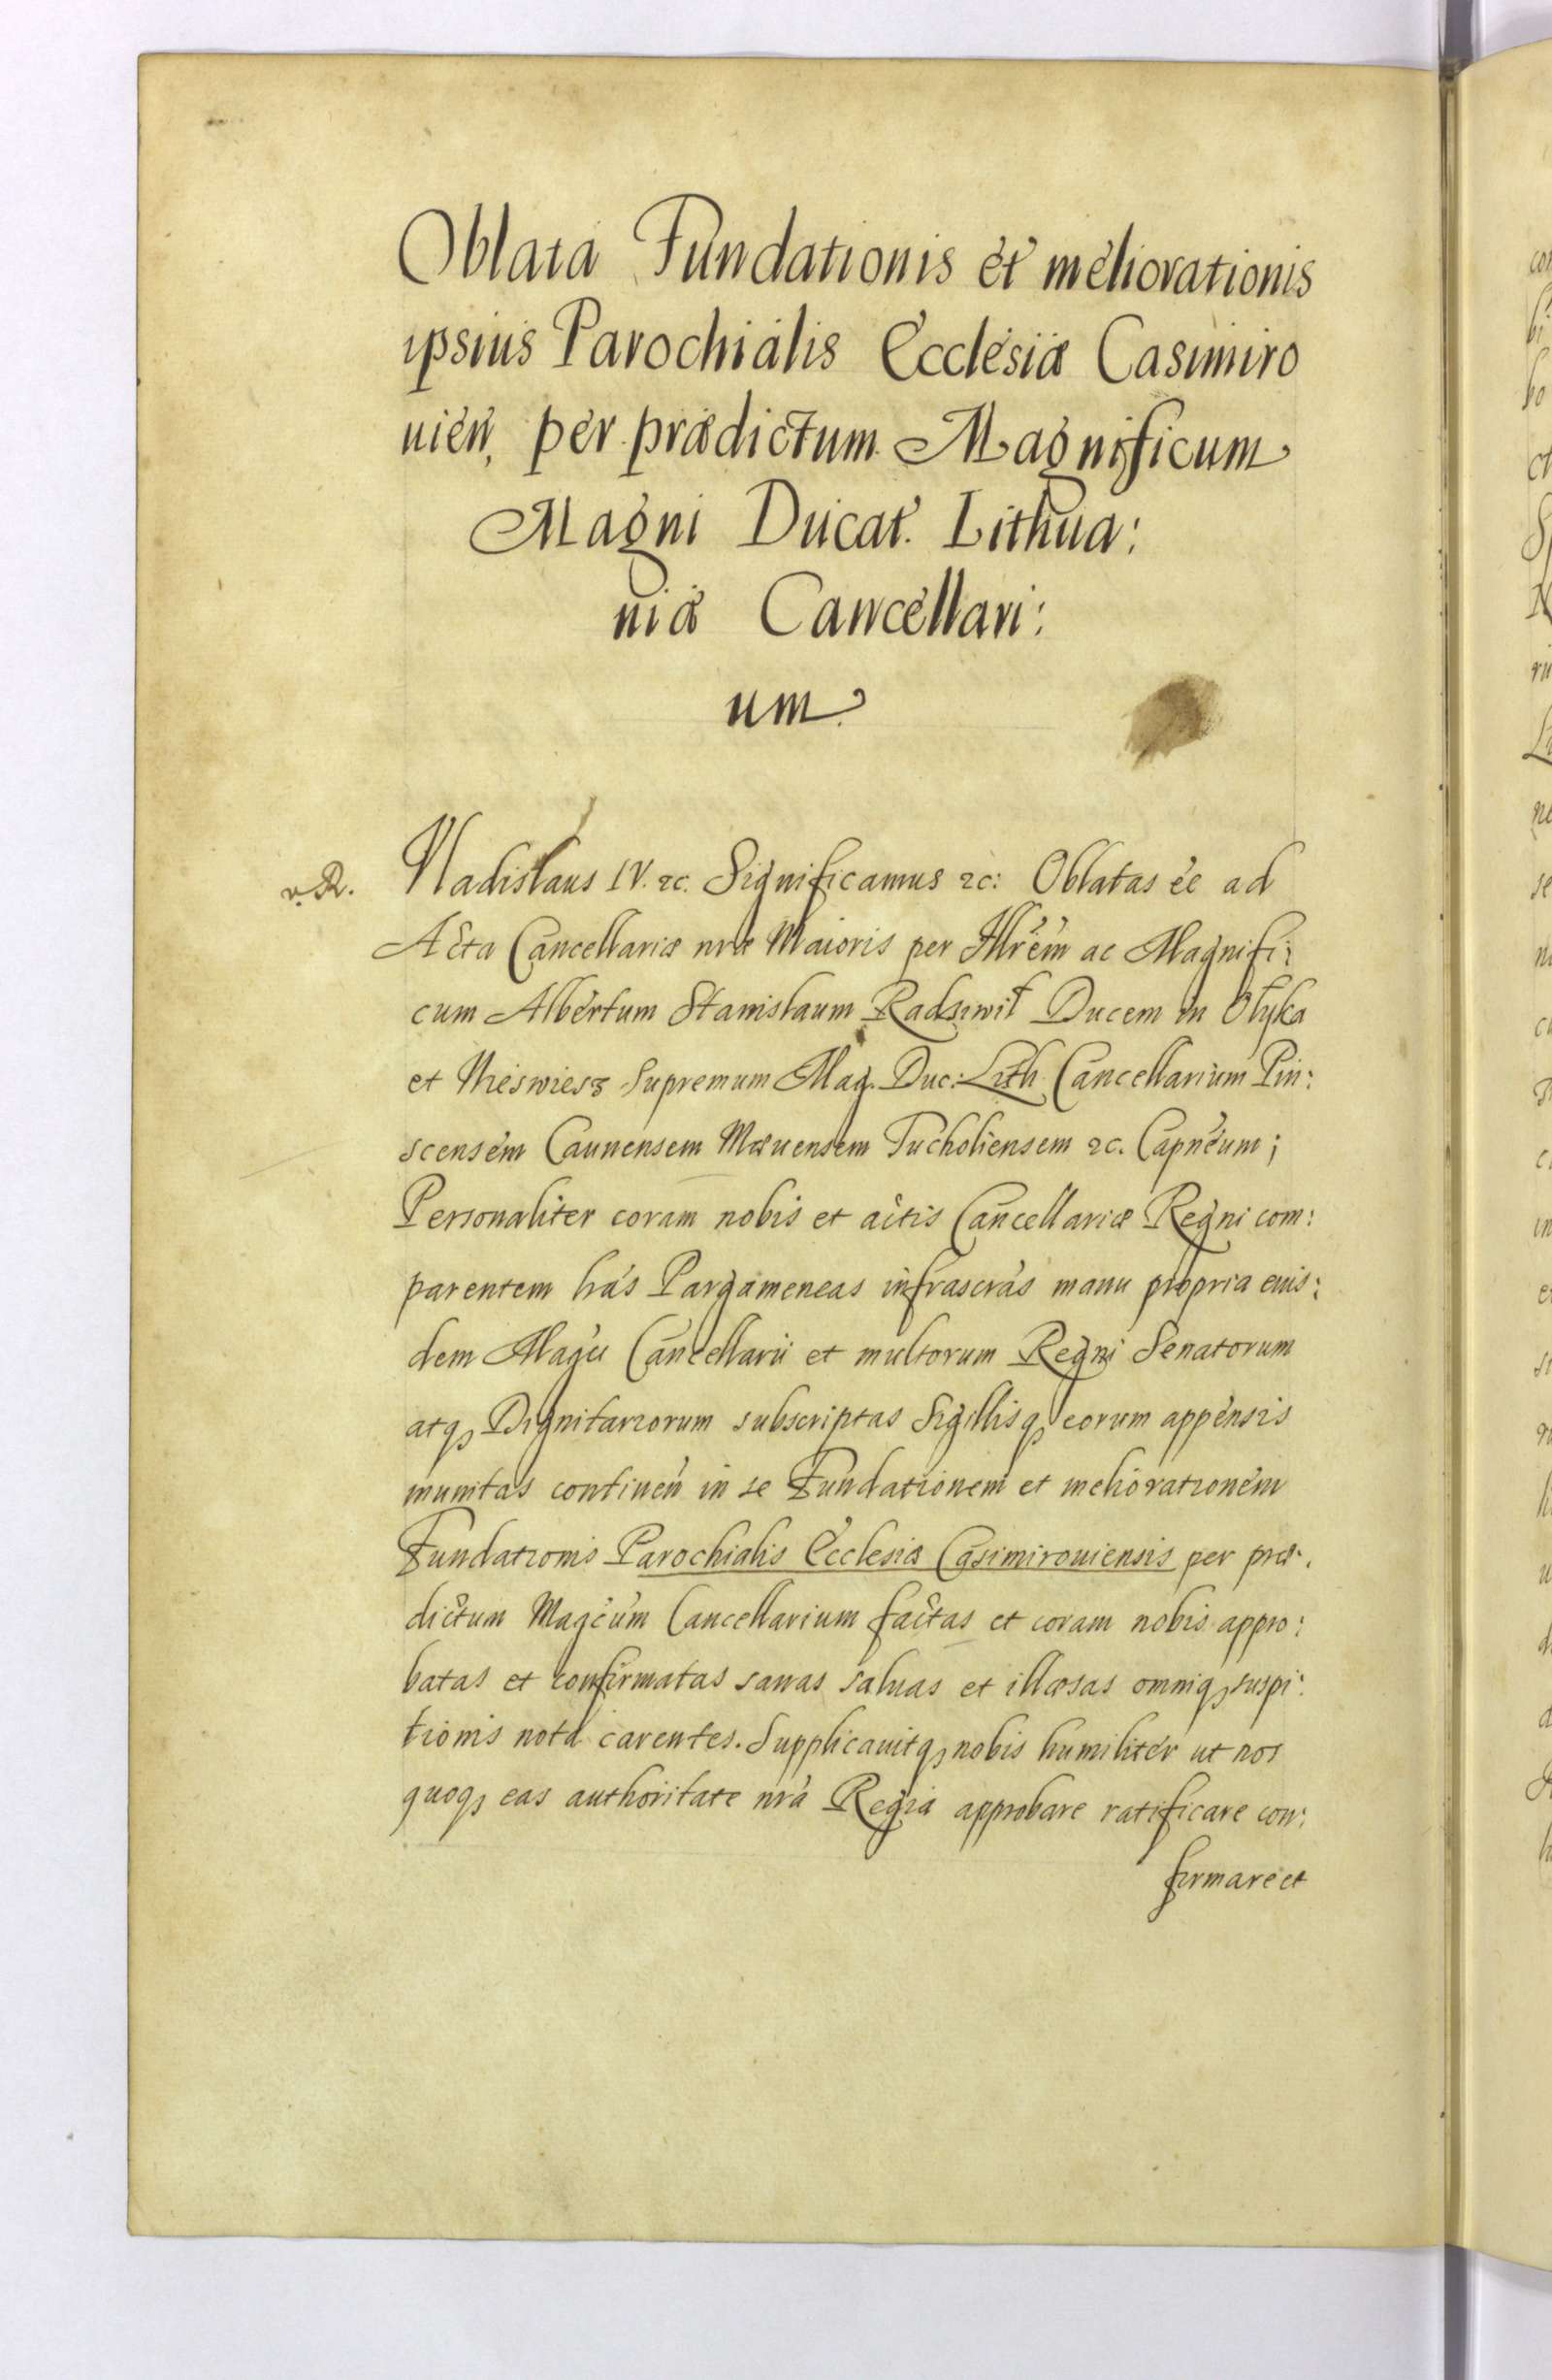 Oblata Fundationis et meliorationis
ipsius Parochialis Ecclesiæ Casimiro
uien, per prædictum Magnificum
Magni Ducat. Lithua:
niæ Cancellari:
um.
Vladislaus IV. 2c. Significamus 2c: Oblatas ee ad
Acta Cancellariæ nræ Maioris per Illrem ac Magnifi:
cum Albertum Stanislaum Radziwił Ducem in Ołyka
et Nieswiesz Supremum Mag. Duc: Lith Cancellarium Pin:
scensem Caunensem Mæuensem Tucholiensem 2c. Capneum;
Personaliter coram nobis et actis Cancellariæ Regni com:
parentem hás Pargameneas infrascrás manu propria eius:
dem Magci Cancellarii et multorum Regni Senatorum
atqꝫ Dignitariorum subscriptas Sigillisqꝫ eorum appensis
munitas continen in se Fundationem et meliorationem
Fundationis Parochialis Ecclesiæ Casimirouiensis per præ:
dictum Magcum Cancellarium factas et coram nobis appro:
batas et confirmatas sanas saluas et illæsas omniqꝫ suspi:
tionis nota carentes. Supplicauitqꝫ nobis humiliter ut nos
quoqꝫ eas authoritate nrá Regia approbare ratificare con:
firmare et